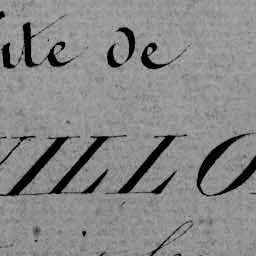 ite de
VILLO